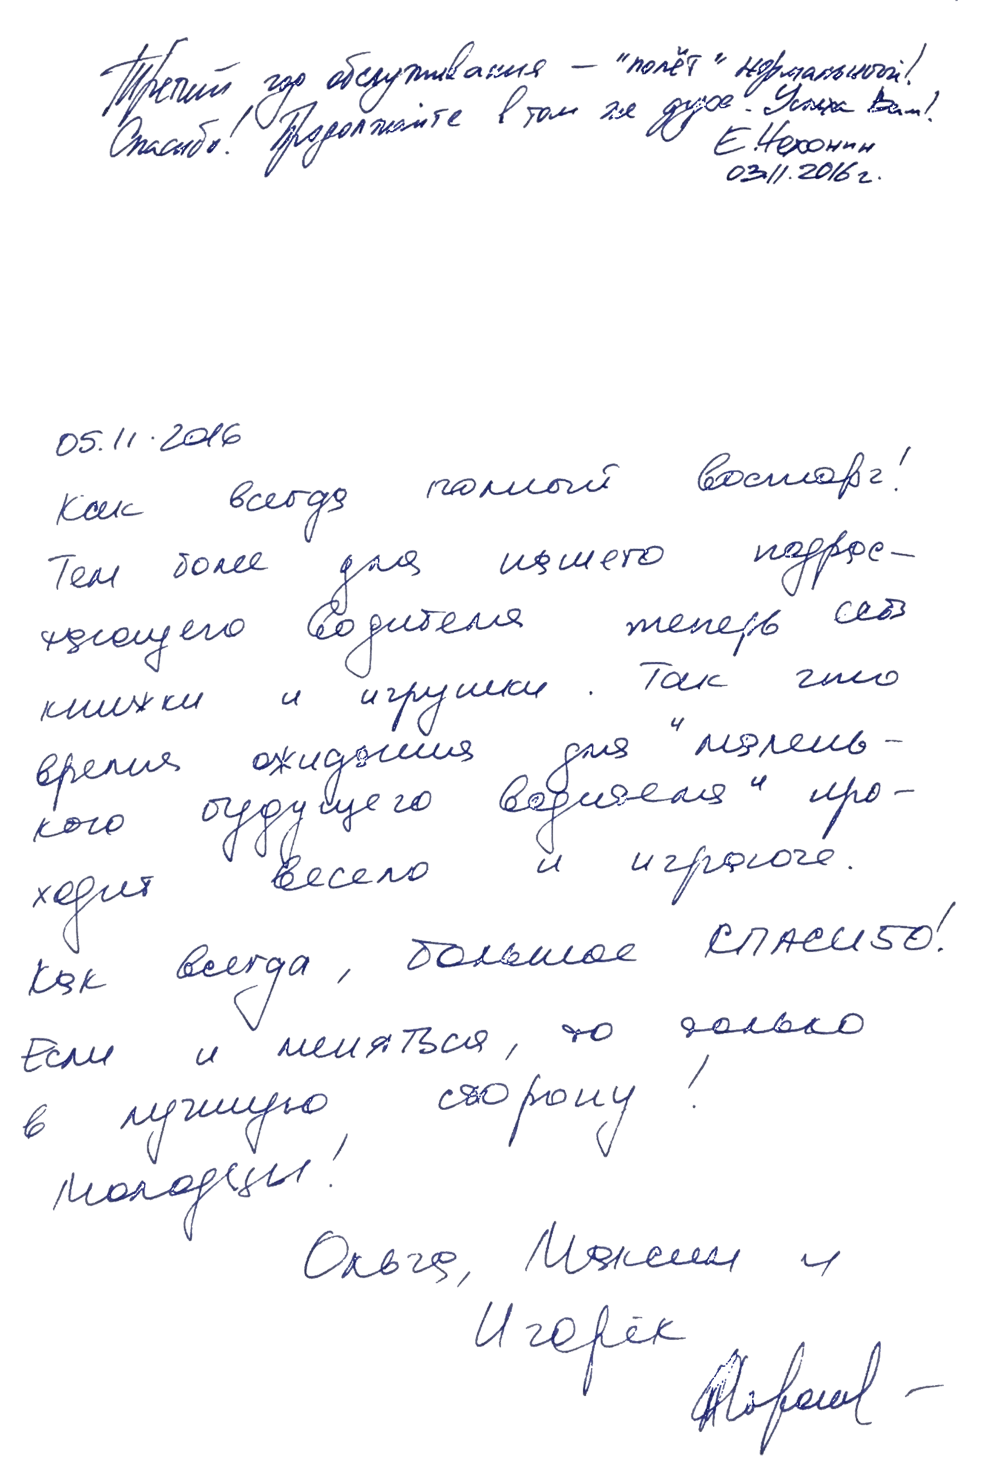 Третий год обслуживания — "полёт" нормальный!
Спасибо! Продолжайте в том же духе. Успеха Вам!
Е. Чехонин
03.11.2016 г.
05.11.2016
Как всегда полный восторг!
Тем более для нашего подрас-
тающего водителя теперь есть
книжки и игрушки. Так что
время ожидания для "малень-
кого будущего водителя" про-
ходит весело и играюче.
Как всегда, большое СПАСИБО!
Если и меняться, то только
в лучшую сторону!
Молодцы!
Ольга, Максим и
Игорёк